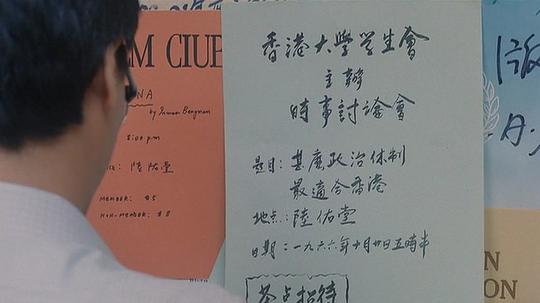 M CIUB
NA
by Inman Bergman
8:00 p.m
陸佑堂
MEMBER: $5
NON-MEMBER: $8
香港大學学生會
主辦
時事討論會
題目：甚麽政治体制
最適合香港
地点：陸佑堂
日期：一九六六年十月廿日五時半
茶点招待
N
ON